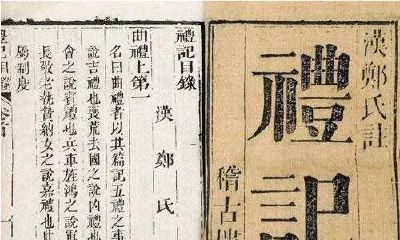 漢鄭氏註
禮記
稽古
禮記目錄
漢鄭氏
曲禮上第一
名曰曲禮者以其篇記五禮之事
說吉禮也喪荒去國之說凶禮也
會之說賓禮也兵車旌鴻之說軍
長敬老執贄納女之說嘉禮也此
屬制度